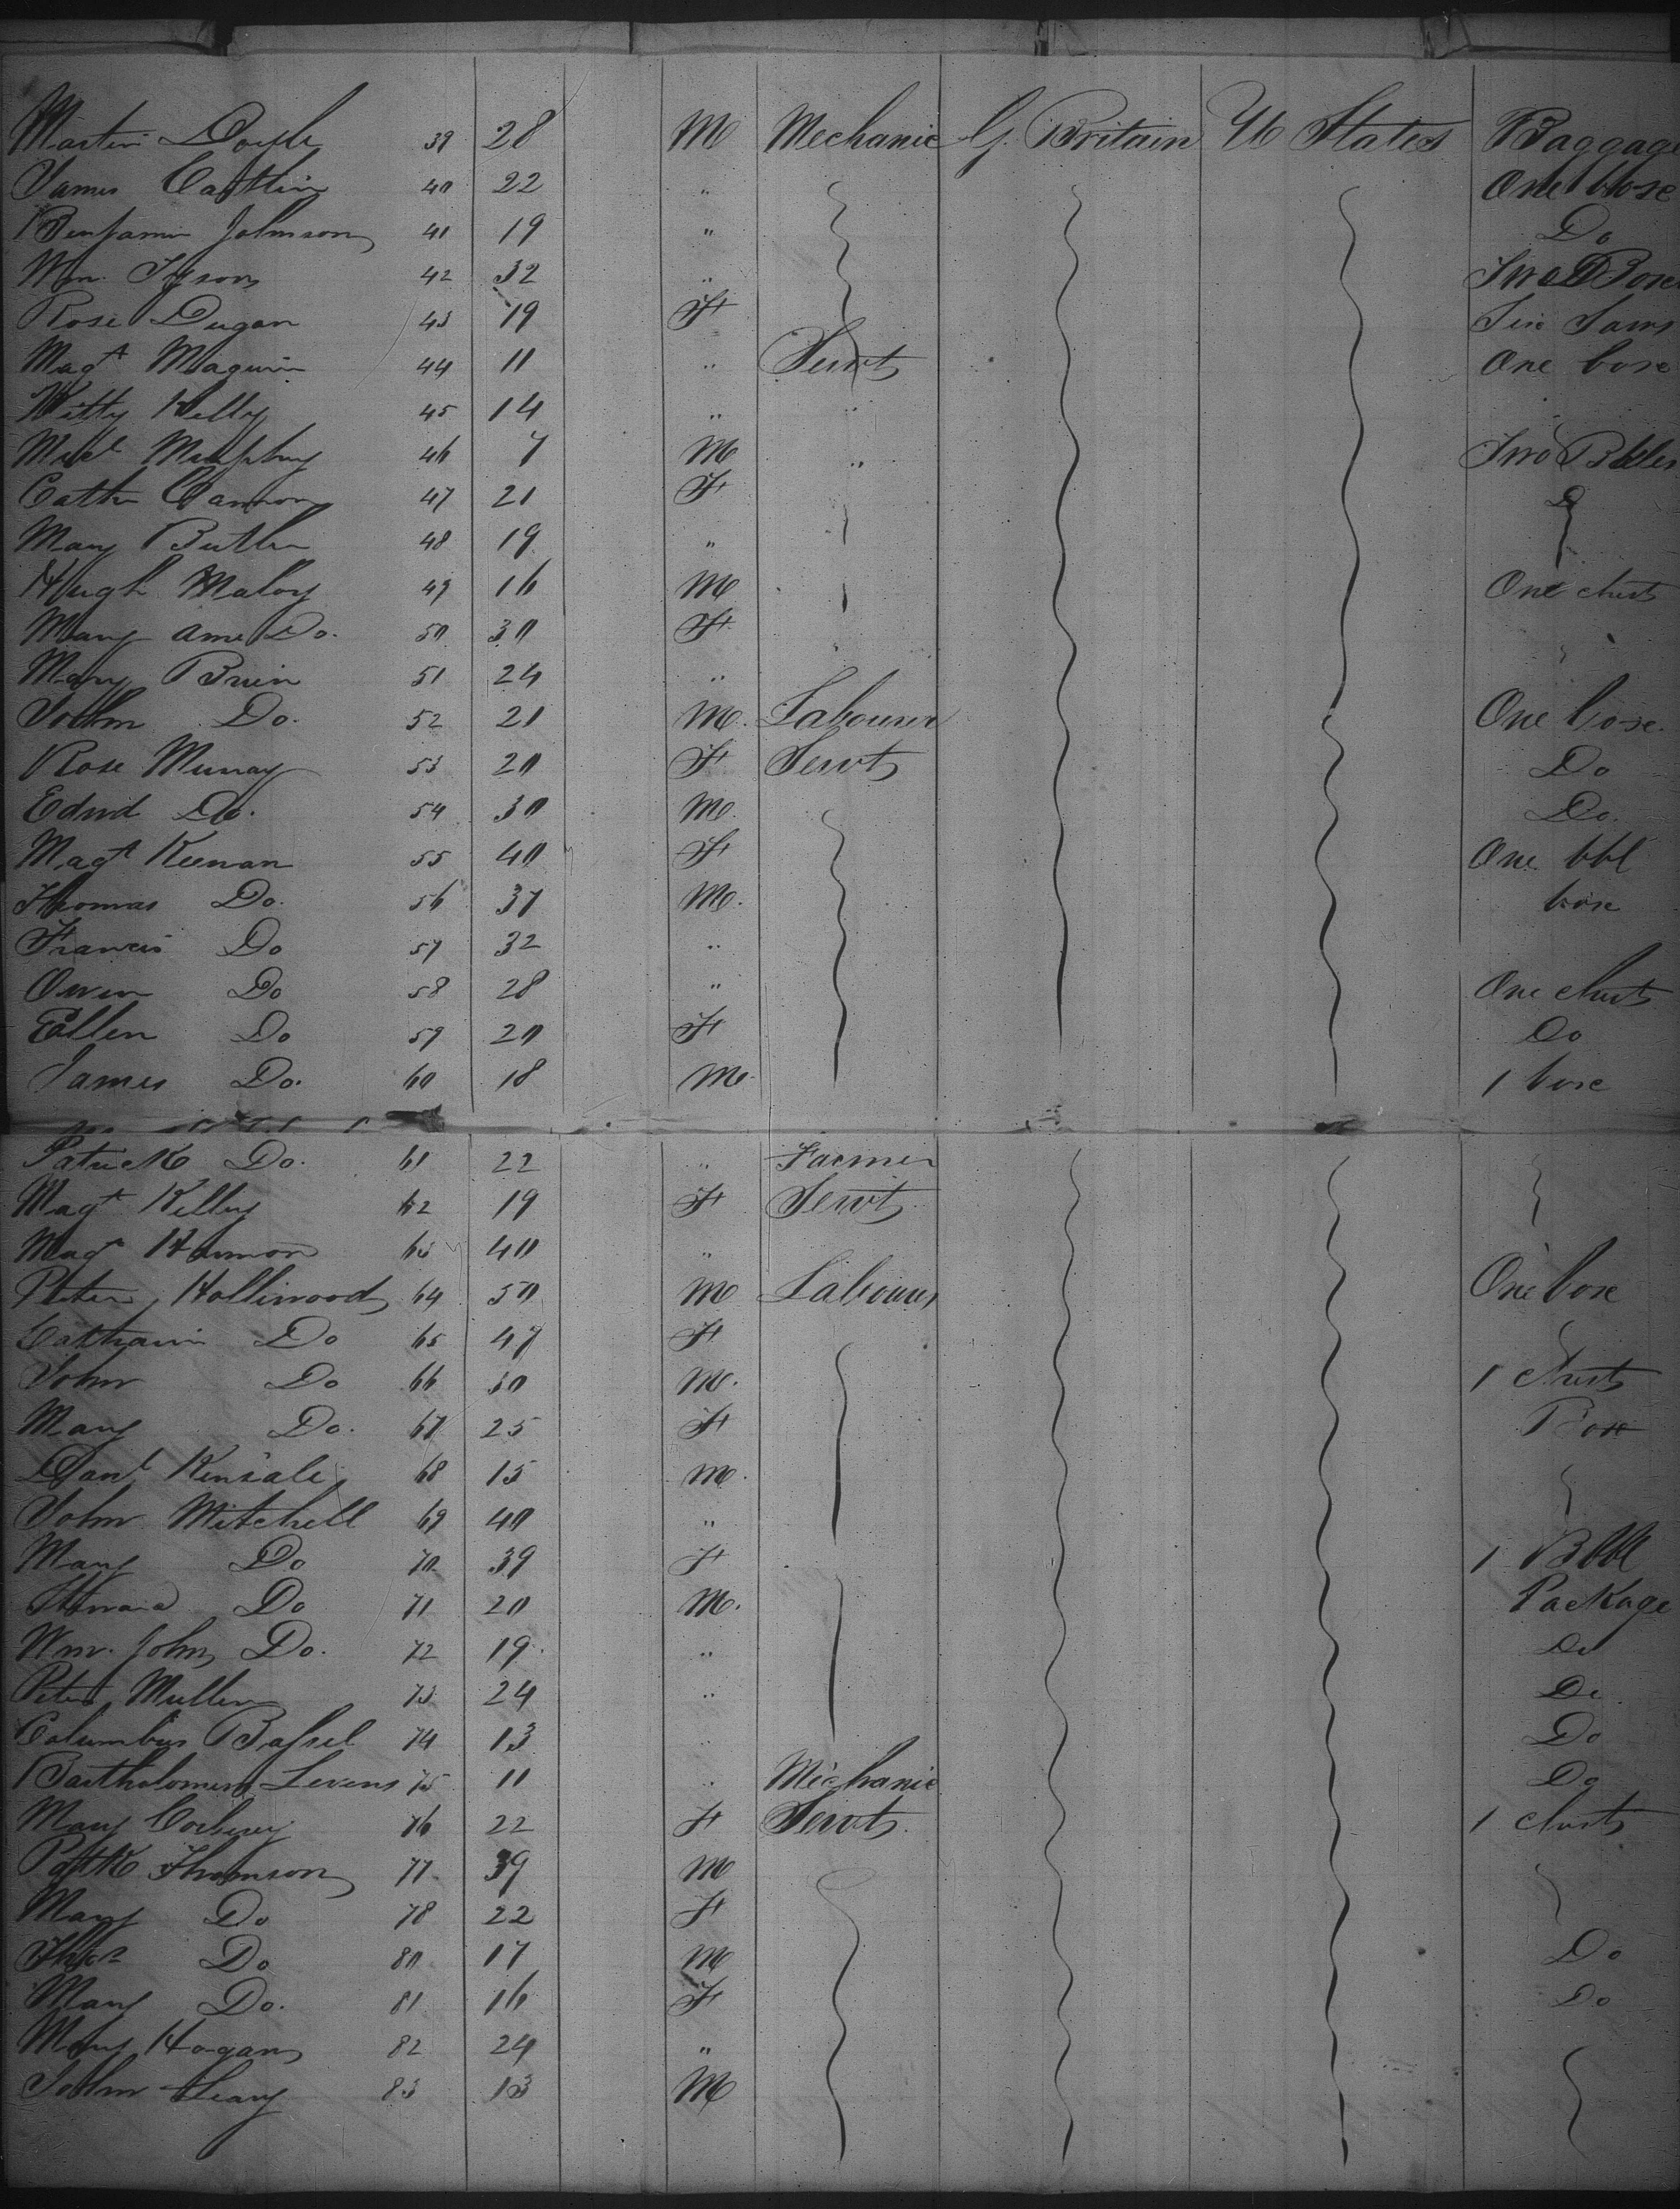 Martin Doyle 39 28 M Mechanic G. Britain U States Baggage
James 40 22 " One box
Benjamin Johnson 41 19 " Do
Wm. Tyson 42 32 " Two Boxes
Rose Dugan 43 19 F
Magt Maguire 44 11 " Servt One box
Kitty Kelly 45 14 " "
Michl Murphy 46 7 M " Two Bbles
Cathe Cannon 47 21 F D
Mary Butler 48 19 "
Hugh Maloy 49 16 M One chest
Mary Ann Do. 50 30 F
Mary Brien 51 24 "
John Do. 52 21 M. Labourer One box.
Rose Murray 53 20 F Servt Do
Edwd Do. 54 30 M. Do.
Magt Keenan 55 40 F One bbl
Thomas Do. 56 37 M. box
Francis Do 57 32 "
Owen Do 58 28 " One chest
Ellen Do 59 20 F Do
James Do. 60 18 M. 1 box
Patrick Do. 61 22 " Farmer
Magt Kelly 62 19 F Servt
Magt 63 40 "
Peter Holliwood 64 50 M Labourer One box
Catharin Do 65 47 F
John Do 66 30 M. 1 Chest
Mary Do. 67 25 F Box
Danl Kinsale 68 15 M.
John Mitchell 69 40 "
Mary Do 70 39 F 1 Bbl
Do 71 20 M. Package
Wm. John Do. 72 19 " Do
Peter Mullen 73 24 " Do
Columbus Bassel 74 13 " Do
Bartholomew Levens 75 11 " Mechanic Do
Mary 76 22 F Servt. 1 chest
Patk Thomson 77 39 M
Mary Do 78 22 F
Thos Do 80 17 M Do
Mary Do. 81 16 F Do
Mary Hogan 82 24 "
John Leary 83 13 M